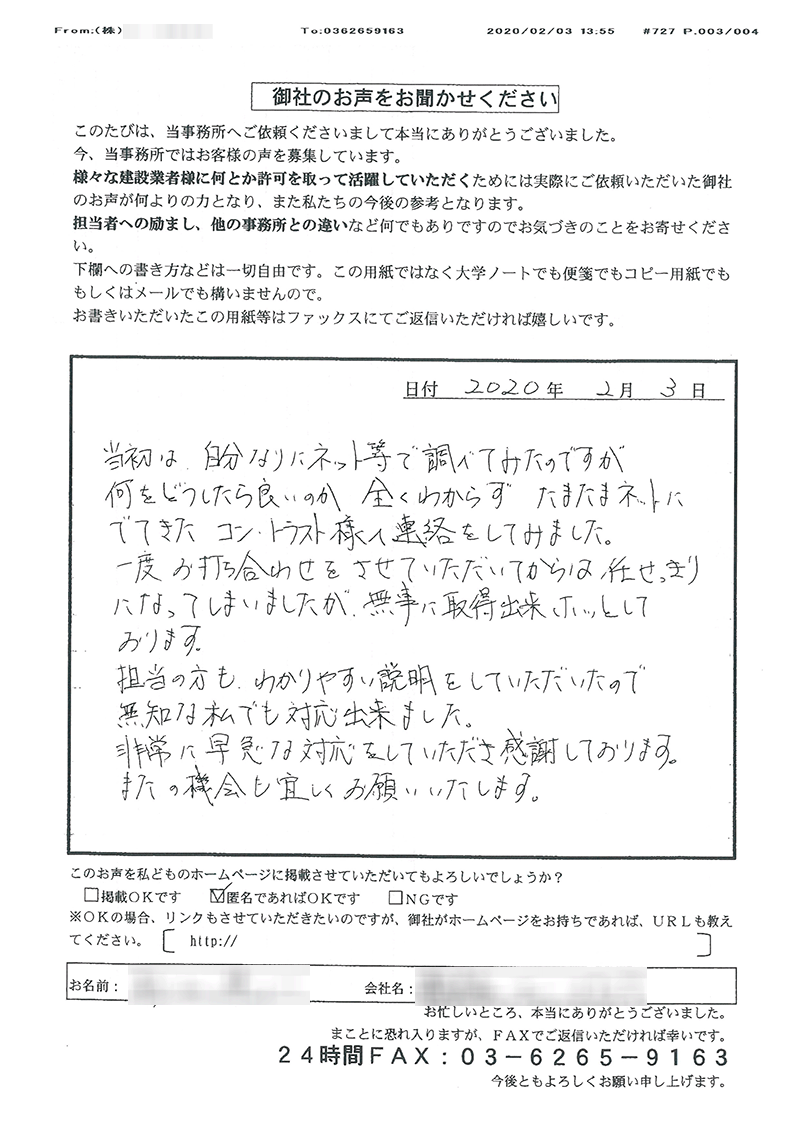 From:(株)
To:0362659163
2020/02/03 13:55
#727 P.003/004
御社のお声をお聞かせください
このたびは、当事務所へご依頼くださいまして本当にありがとうございました。
今、当事務所ではお客様の声を募集しています。
様々な建設業者様に何とか許可を取って活躍していただくためには実際にご依頼いただいた御社
のお声が何よりの力となり、また私たちの今後の参考となります。
担当者への励まし、他の事務所との違いなど何でもありですのでお気づきのことをお寄せくださ
い。
下欄への書き方などは一切自由です。この用紙ではなく大学ノートでも便箋でもコピー用紙でも
もしくはメールでも構いませんので。
お書きいただいたこの用紙等はファックスにてご返信いただければ嬉しいです。
日付 2020年 2月 3日
当初は、自分なりにネット等で調べてみたのですが
何をどうしたら良いのか 全くわからず たまたまネットに
でてきた コン・トラスト様へ連絡をしてみました。
一度 お打ち合わせを させていただいてからは、任せっきり
になってしまいましたが、無事に取得出来 ホッとして
おります。
担当の方も、わかりやすい説明をしていただいたので
無知な私でも対応出来ました。
非常に早急な対応をしていただき感謝しております。
またの機会も宜しくお願いいたします。
このお声を私どものホームページに掲載させていただいてもよろしいでしょうか?
□掲載OKです ☑匿名であればOKです □NGです
※OKの場合、リンクもさせていただきたいのですが、御社がホームページをお持ちであれば、URLも教え
てください。 [ http:// ]
お名前: 会社名:
お忙しいところ、本当にありがとうございました。
まことに恐れ入りますが、FAXでご返信いただければ幸いです。
24時間FAX:03-6265-9163
今後ともよろしくお願い申し上げます。